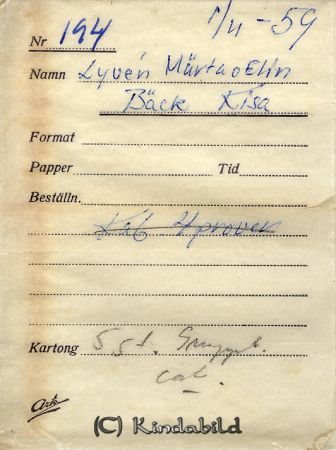 1/11 - 59
Nr 194
Namn Lyvén Märta o Elin
Bäck Kisa
Format
Papper Tid
Beställn.
4 prover
Kartong 5 st.
Ark
(C) Kindabild